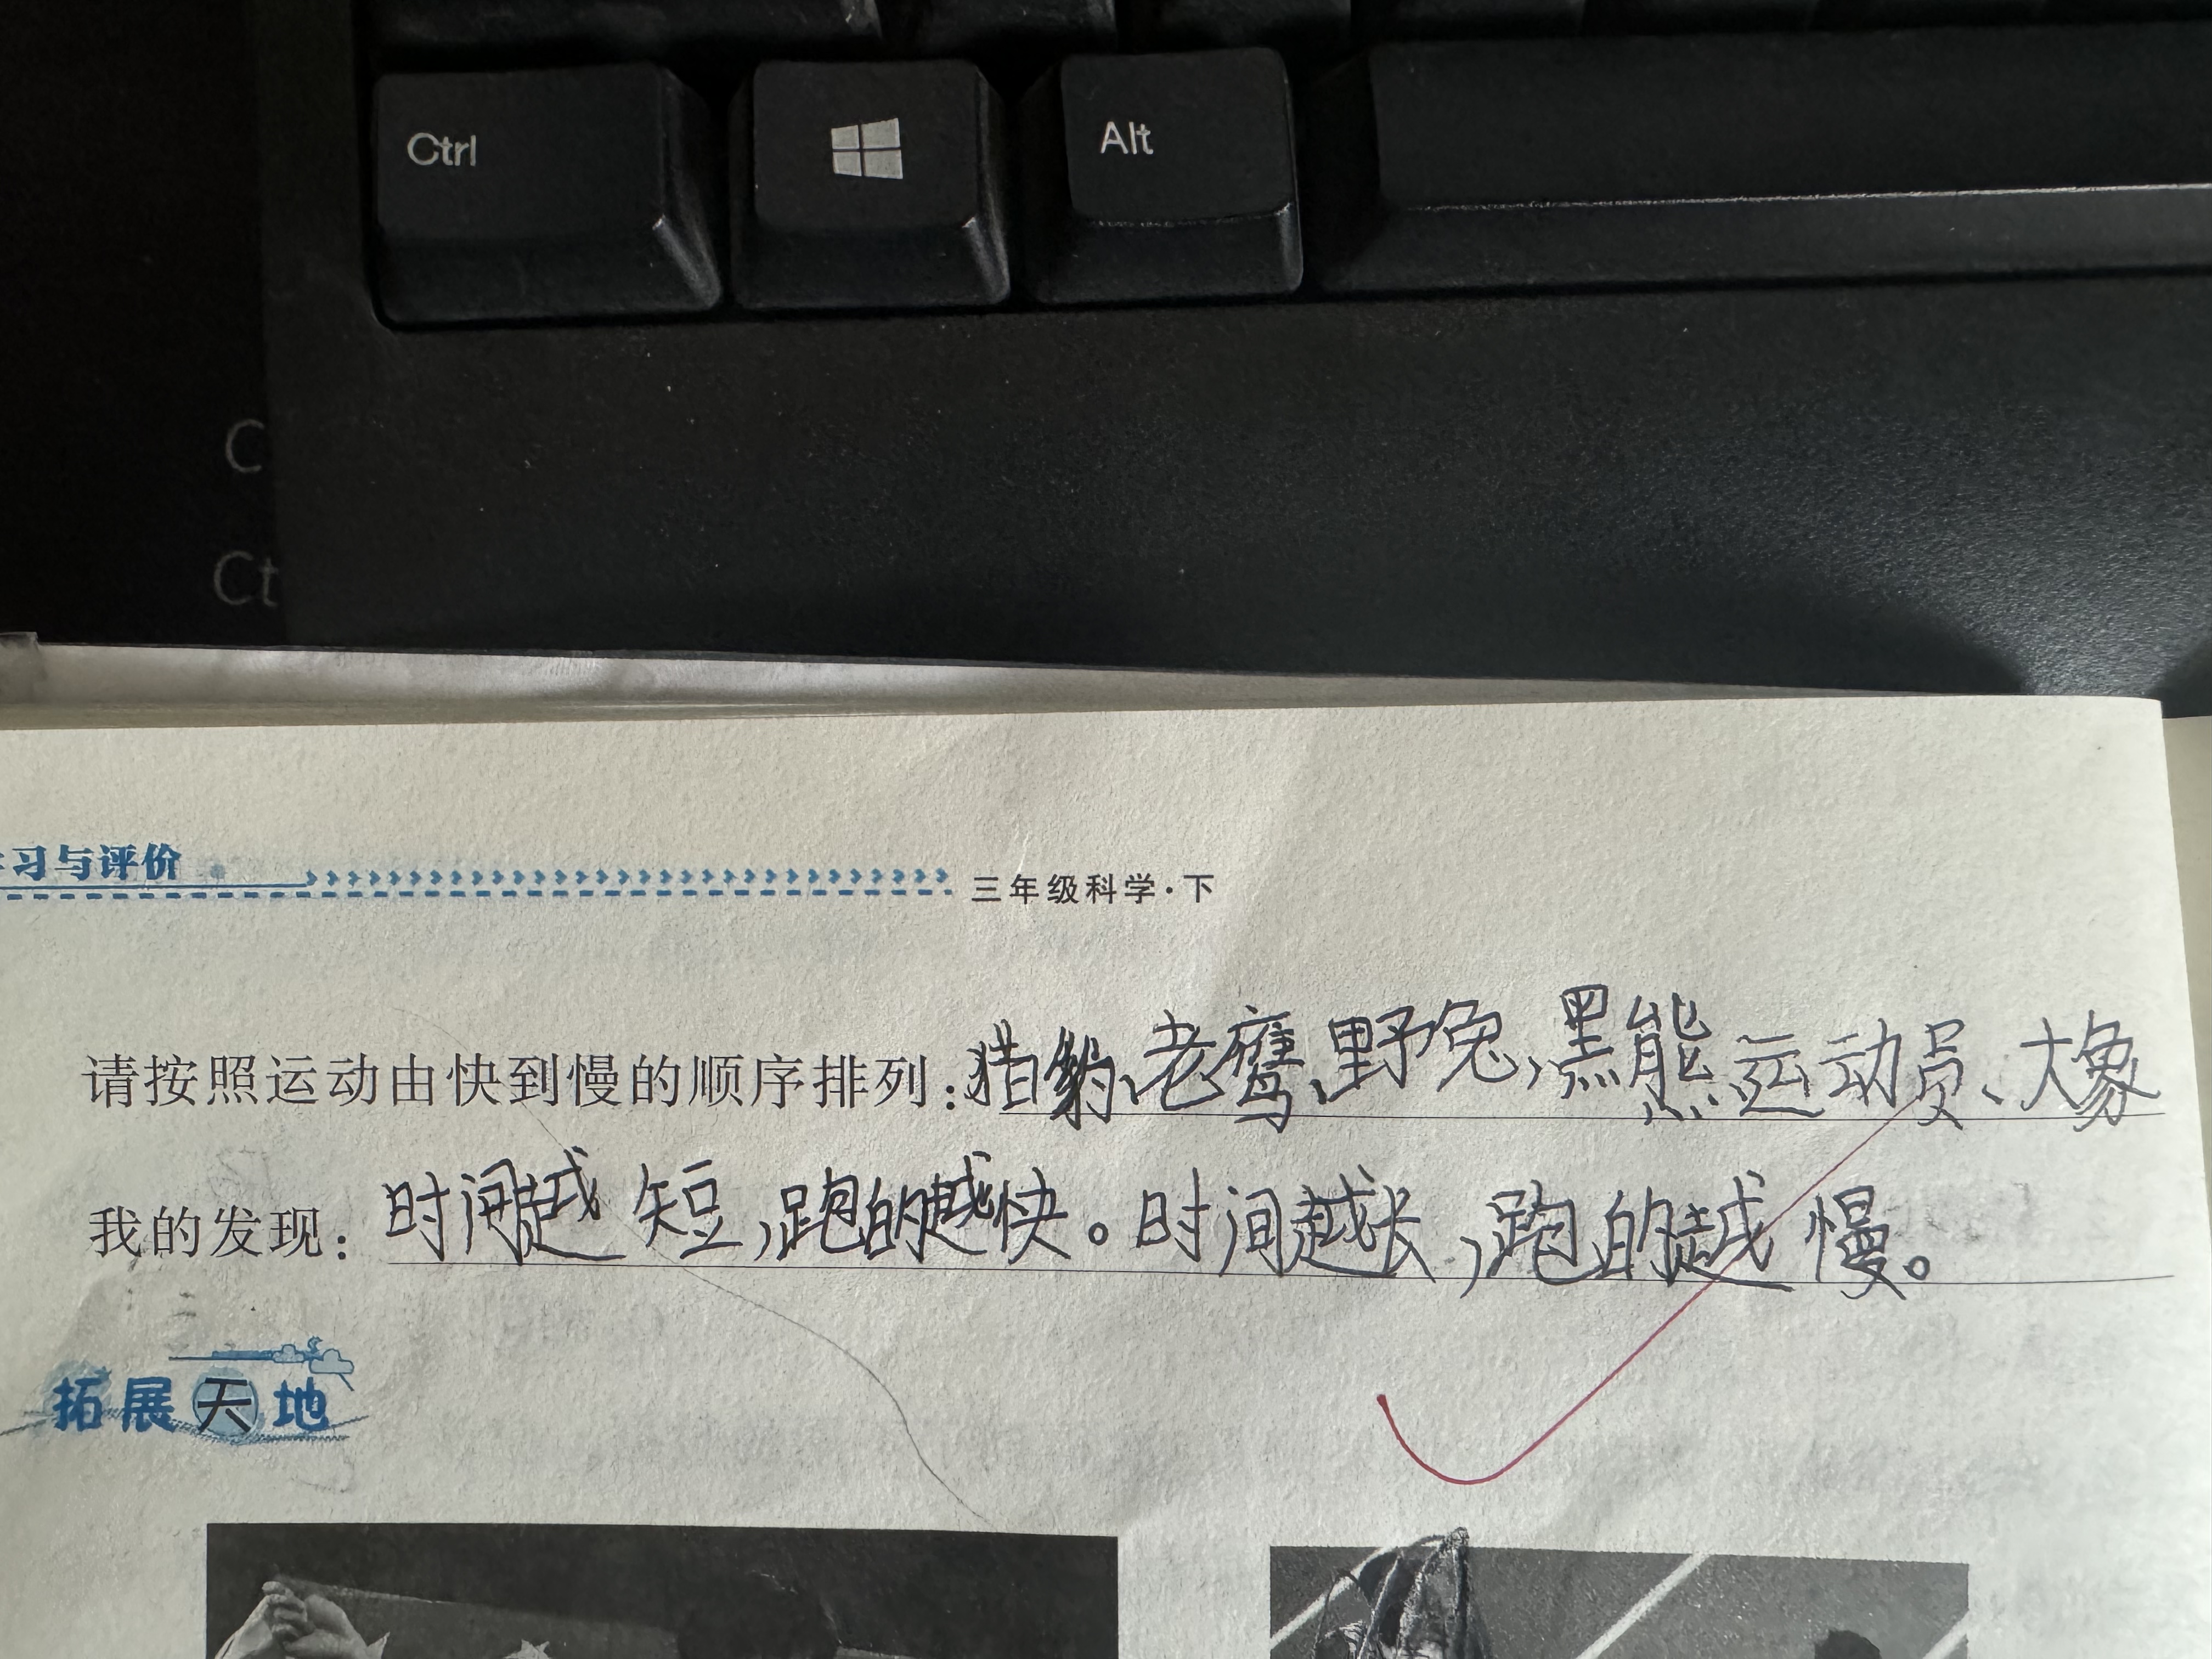 Ctrl Alt
C
Ct
习与评价
三年级科学·下
请按照运动由快到慢的顺序排列:猎豹、老鹰、野兔、黑熊、运动员、大象
我的发现:时间越短,跑的越快。时间越长,跑的越慢。
拓展天地